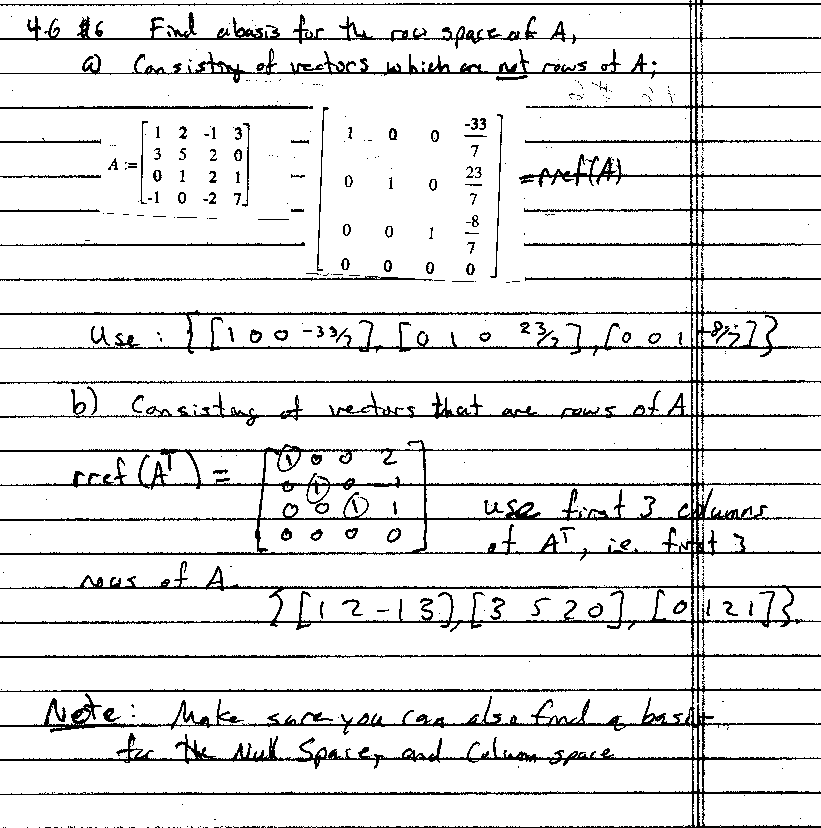 4.6 #6 Find a basis for the row space of A,
a) Consisting of vectors which are not rows of A;
A := [1 2 -1 3
3 5 2 0
0 1 2 1
-1 0 -2 7]
[1 0 0 -33/7
0 1 0 23/7
0 0 1 -8/7
0 0 0 0] = rref(A)
Use : {[1 0 0 -33/7], [0 1 0 23/7], [0 0 1 -8/7]}
b) Consisting of vectors that are rows of A
rref (Aᵀ) = [1 0 0 2
0 1 0 -1
0 0 1 1
0 0 0 0]
use first 3 columns
of Aᵀ, i.e. first 3
rows of A.
{[1 2 -1 3], [3 5 2 0], [0 1 2 1]}.
Note: Make sure you can also find a basis
for the Null Space, and Column space